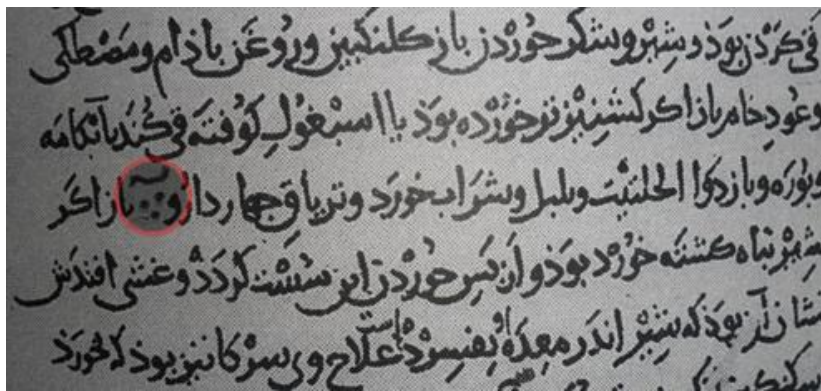 قی کردن بوذ و شیر و شکر خوردن باز کلنکبین و روغن باذام و مصطکی
و عود خام باز اکر کشنیز تر خورده بوذ یا اسبغول کوفته قی کند بآبکامه
و بوره و باز دوا الحلتیت و بلبل و شراب بخورد و تریاق چهار دارو باز اکر
شیر تباه کشته خورد بوذ و از بس خوردن این سست کردذ و غشی افتدش
نشان آن بوذ که شیر اندر معده بفسرد علاح وی بیز بوذ که بخورذ